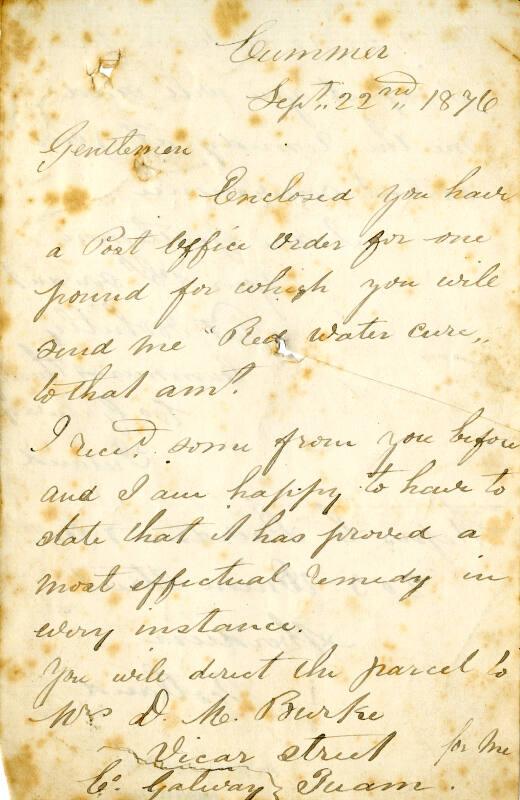 Cummer
Sept,, 22nd,, 1876
Gentlemen
Enclosed you have
a Post Office Order for one
pound for which you will
send me "Red water cure,,
to that amt.
I recd. some from you before
and I am happy to have to
state that it has proved a
most effectual remedy in
every instance.
You will direct the parcel to
Mrs D. M. Burke
Vicar street for me
Co. Galway Tuam.